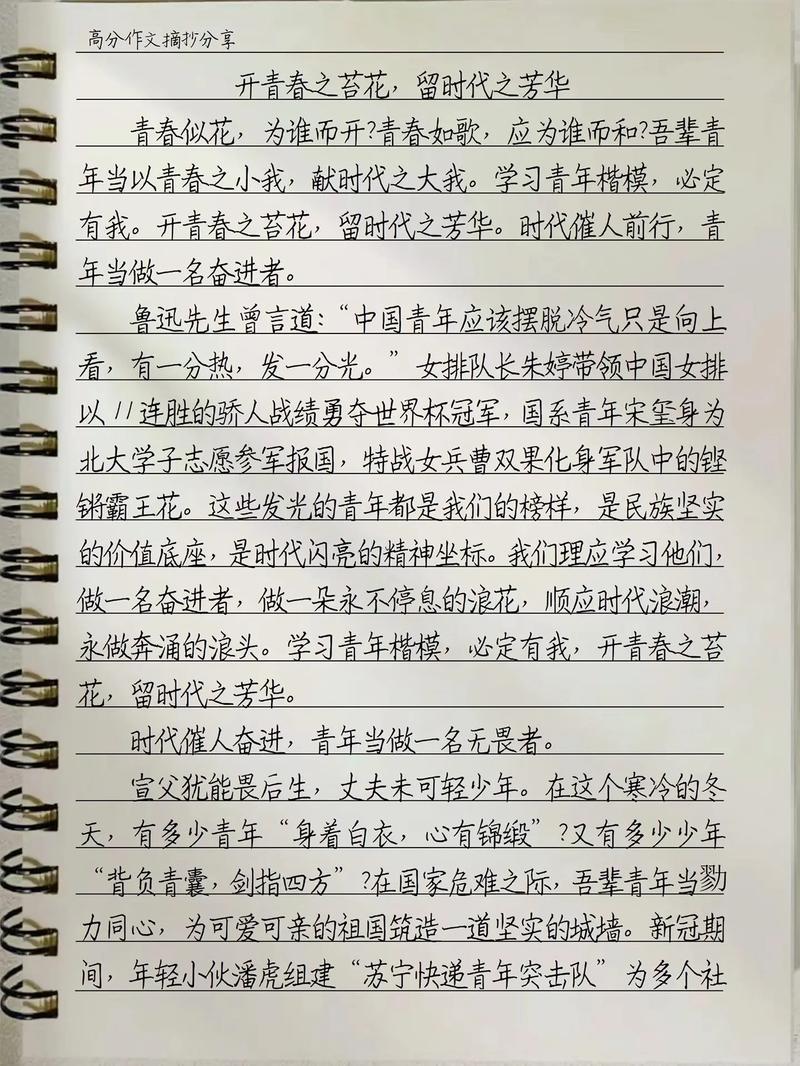 高分作文摘抄分享
开青春之苔花，留时代之芳华
青春似花，为谁而开?青春如歌，应为谁而和?吾辈青
年当以青春之小我，献时代之大我。学习青年楷模，必定
有我。开青春之苔花，留时代之芳华。时代催人前行，青
年当做一名奋进者。
鲁迅先生曾言道:“中国青年应该摆脱冷气只是向上
看，有一分热，发一分光。”女排队长朱婷带领中国女排
以11连胜的骄人战绩勇夺世界杯冠军，国系青年宋玺身为
北大学子志愿参军报国，特战女兵曹双果化身军队中的铿
锵霸王花。这些发光的青年都是我们的榜样，是民族坚实
的价值底座，是时代闪亮的精神坐标。我们理应学习他们，
做一名奋进者，做一朵永不停息的浪花，顺应时代浪潮，
永做奔涌的浪头。学习青年楷模，必定有我，开青春之苔
花，留时代之芳华。
时代催人奋进，青年当做一名无畏者。
宣父犹能畏后生，丈夫未可轻少年。在这个寒冷的冬
天，有多少青年“身着白衣，心有锦缎”?又有多少少年
“背负青囊，剑指四方”?在国家危难之际，吾辈青年当勠
力同心，为可爱可亲的祖国筑造一道坚实的城墙。新冠期
间，年轻小伙潘虎组建“苏宁快递青年突击队”为多个社